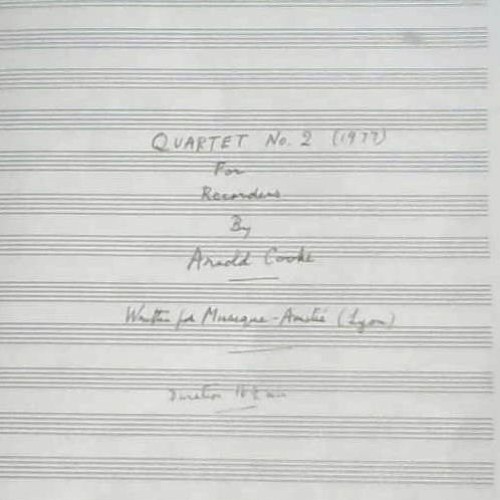 QUARTET No. 2 (1977)
For
Recorders
By
Arnold Cooke
Written for Musique-Amitié (Lyon)
Duration